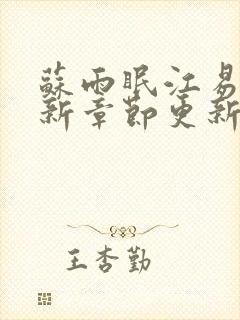 蘇雨眠江易
新章節更新
王杏勤